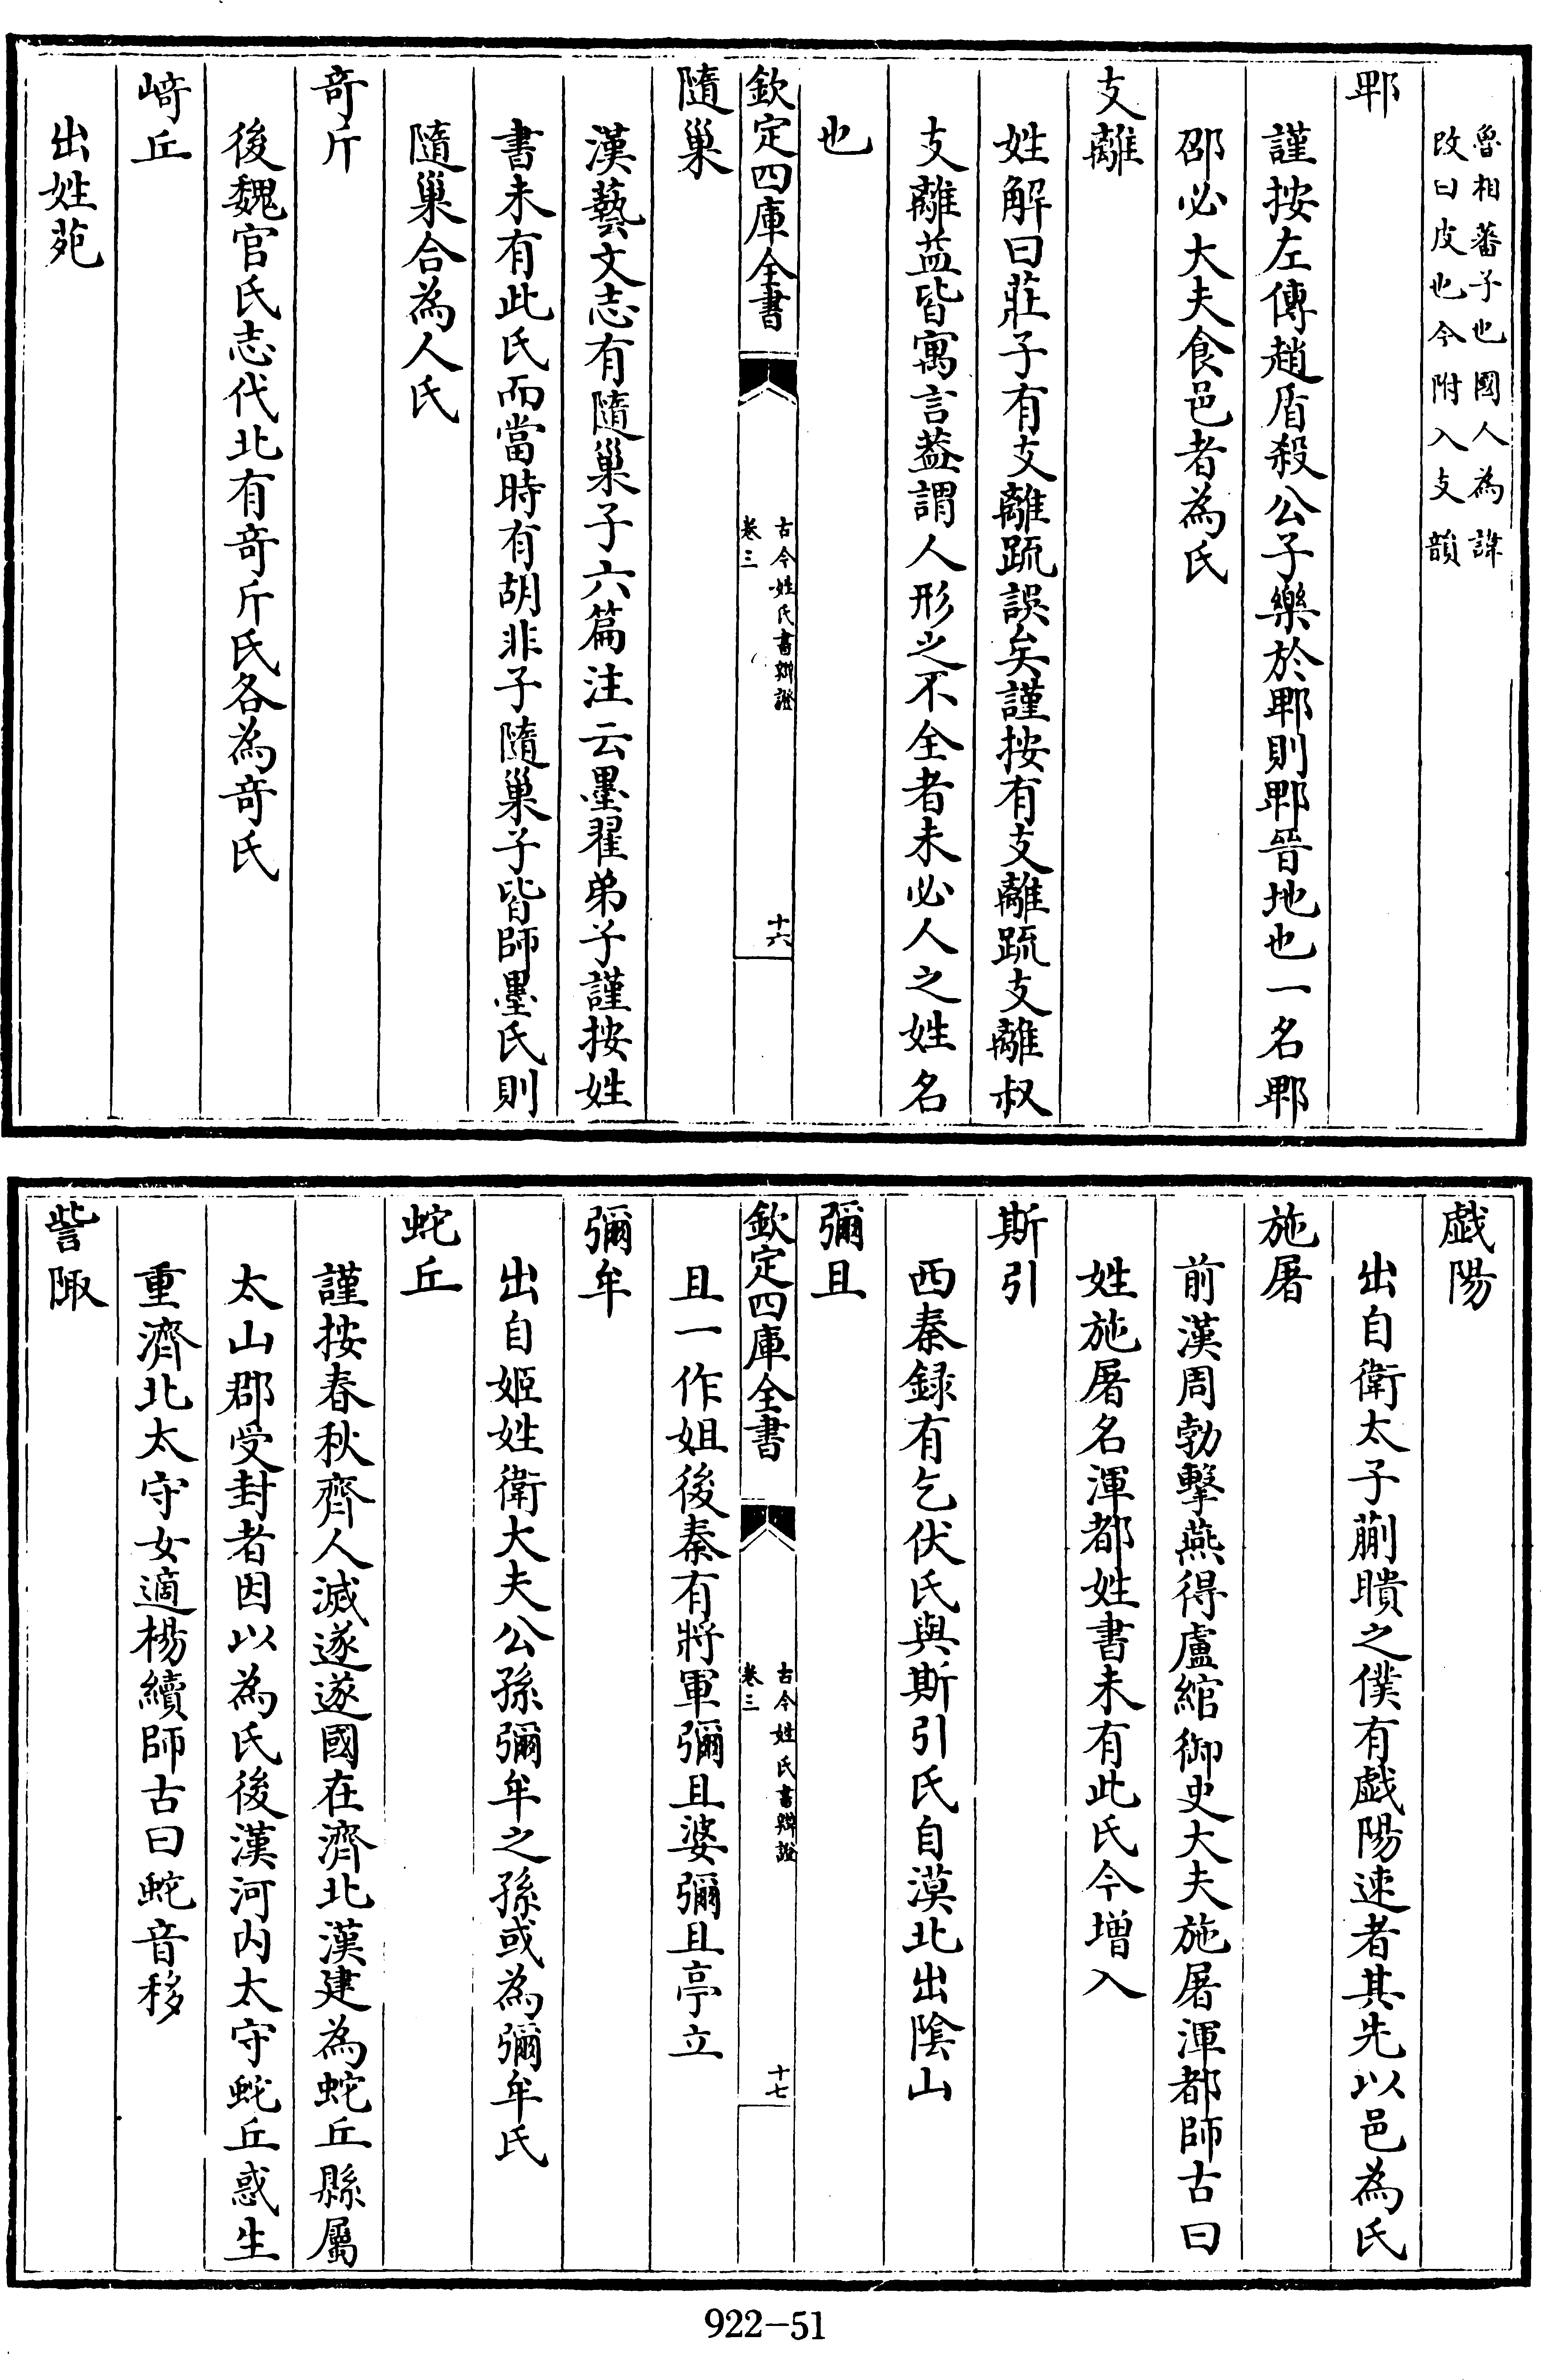 魯相蕃子也國人為諱
改曰皮也今附入支韻
郫
謹按左傳趙盾殺公子樂於郫則郫晉地也一名郫
邵必大夫食邑者為氏
支離
姓解曰莊子有支離䟽誤矣謹按有支離䟽支離叔
支離益皆寓言葢謂人形之不全者未必人之姓名
也
欽定四庫全書
古今姓氏書辯證
卷三
十六
隨巢
漢藝文志有隨巢子六篇注云墨翟弟子謹按姓
書未有此氏而當時有胡非子隨巢子皆師墨氏則
隨巢合為人氏
奇斤
後魏官氏志代北有奇斤氏各為奇氏
崎丘
出姓苑
戯陽
出自衛太子蒯聵之僕有戯陽速者其先以邑為氏
施屠
前漢周勃擊燕得盧綰御史大夫施屠渾都師古曰
姓施屠名渾都姓書未有此氏今增入
斯引
西秦録有乞伏氏與斯引氏自漠北出陰山
彌且
欽定四庫全書
古今姓氏書辯證
卷三
十七
且一作姐後秦有將軍彌且婆彌且亭立
彌牟
出自姬姓衛大夫公孫彌牟之孫或為彌牟氏
蛇丘
謹按春秋齊人滅遂遂國在濟北漢建為蛇丘縣屬
太山郡受封者因以為氏後漢河内太守蛇丘惑生
重濟北太守女適楊續師古曰蛇音移
訾陬
922-51